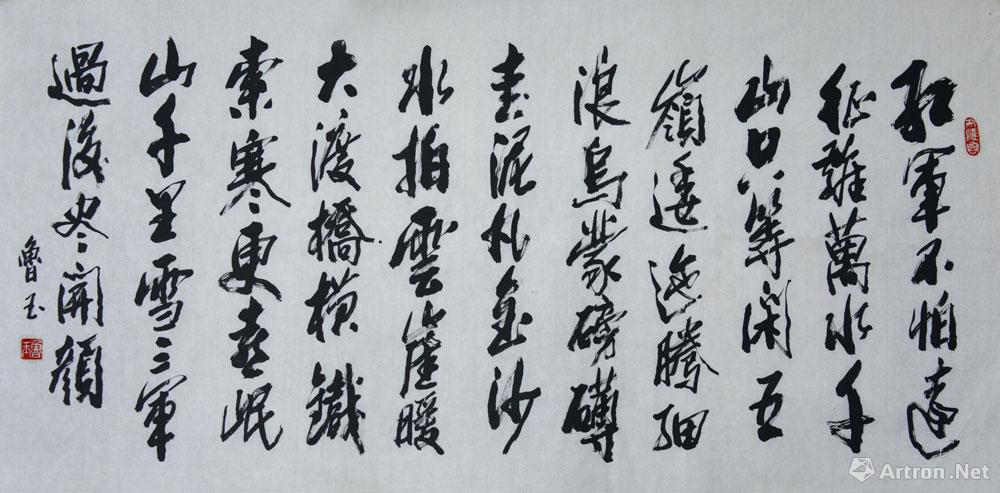 紅軍不怕遠
征難萬水千
山只等閑五
嶺逶迤騰細
浪烏蒙磅礴
走泥丸金沙
水拍雲崖暖
大渡橋横鐵
索寒更喜岷
山千里雪三軍
過後尽開顔
魯玉
Artron.Net